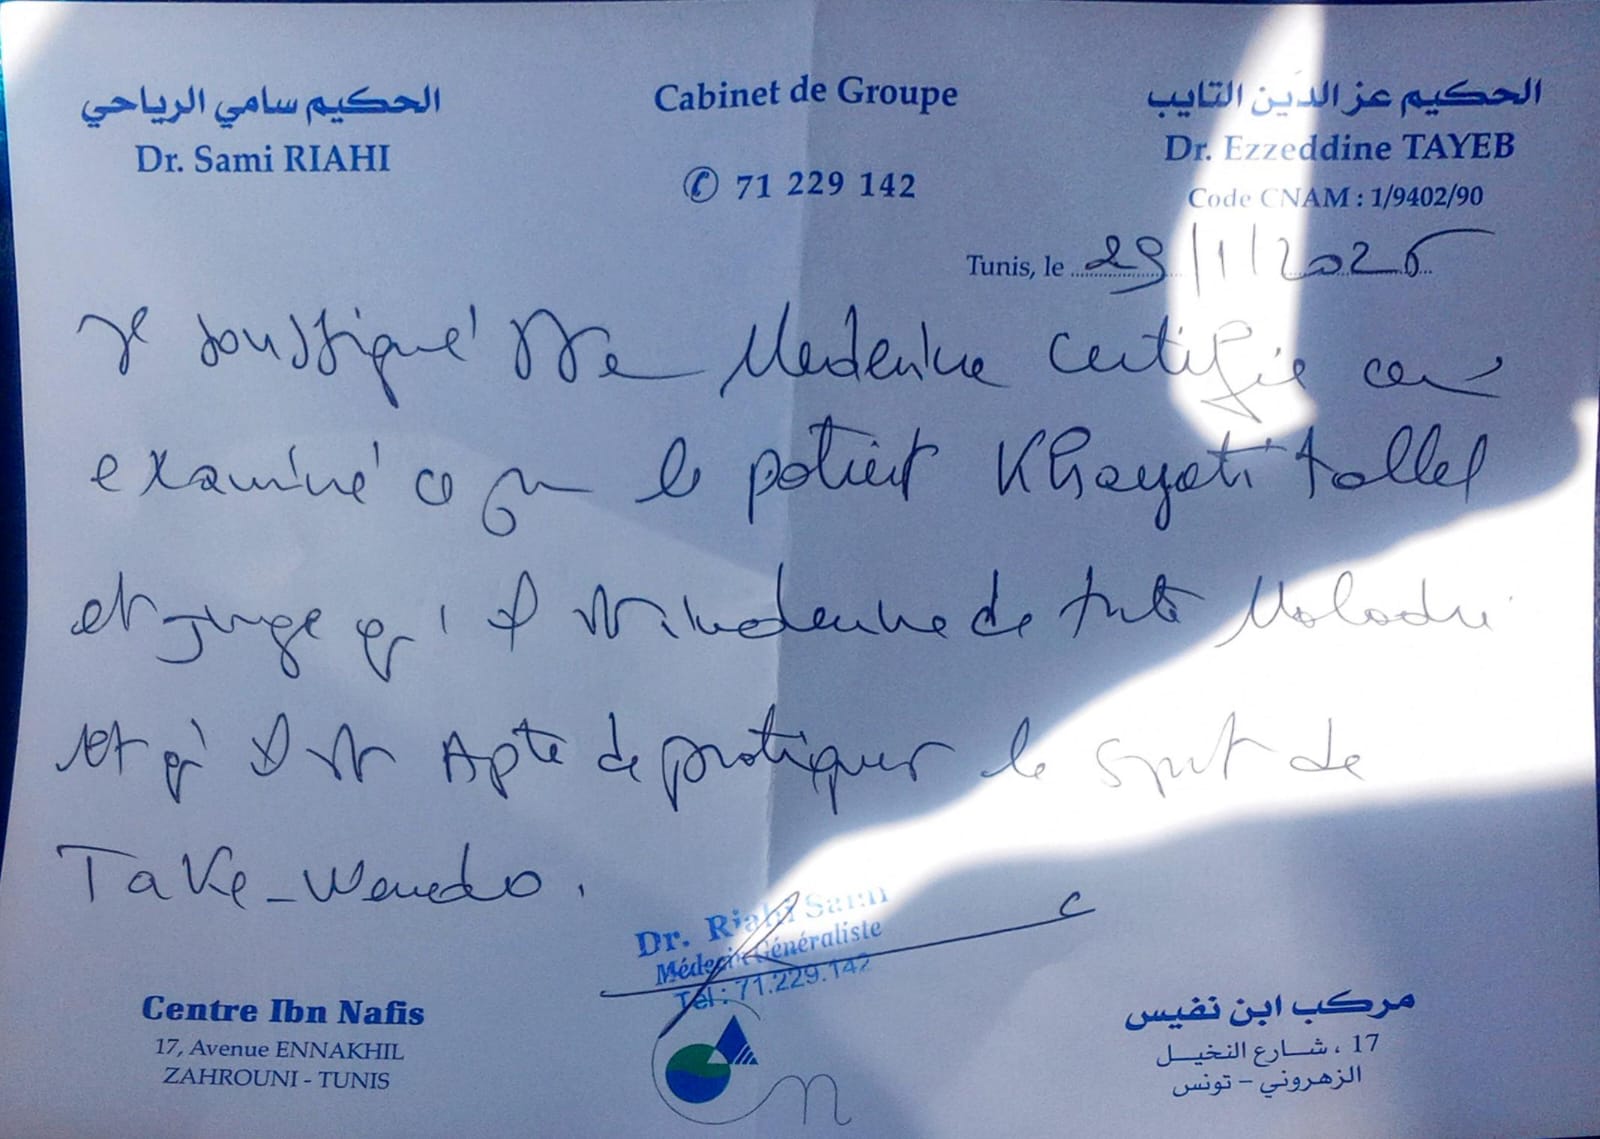 الحكيم سامي الرياحي
Dr. Sami RIAHI
Cabinet de Groupe
✆ 71 229 142
الحكيم عز الدين التايب
Dr. Ezzeddine TAYEB
Code CNAM : 1/9402/90
Tunis, le 29/1/2026
Je soussigné Médecine certifie
examiné le patient Khayati Tallel
et juge qu'il indemne de toute Maladie
et qu'il est Apte de pratiquer le sport de
Take-Wendo.
Dr. Riahi Sami
Médecin Généraliste
Tél : 71.229.142
Centre Ibn Nafis
17, Avenue ENNAKHIL
ZAHROUNI - TUNIS
مركب ابن نفيس
17 ، شارع النخيل
الزهروني - تونس